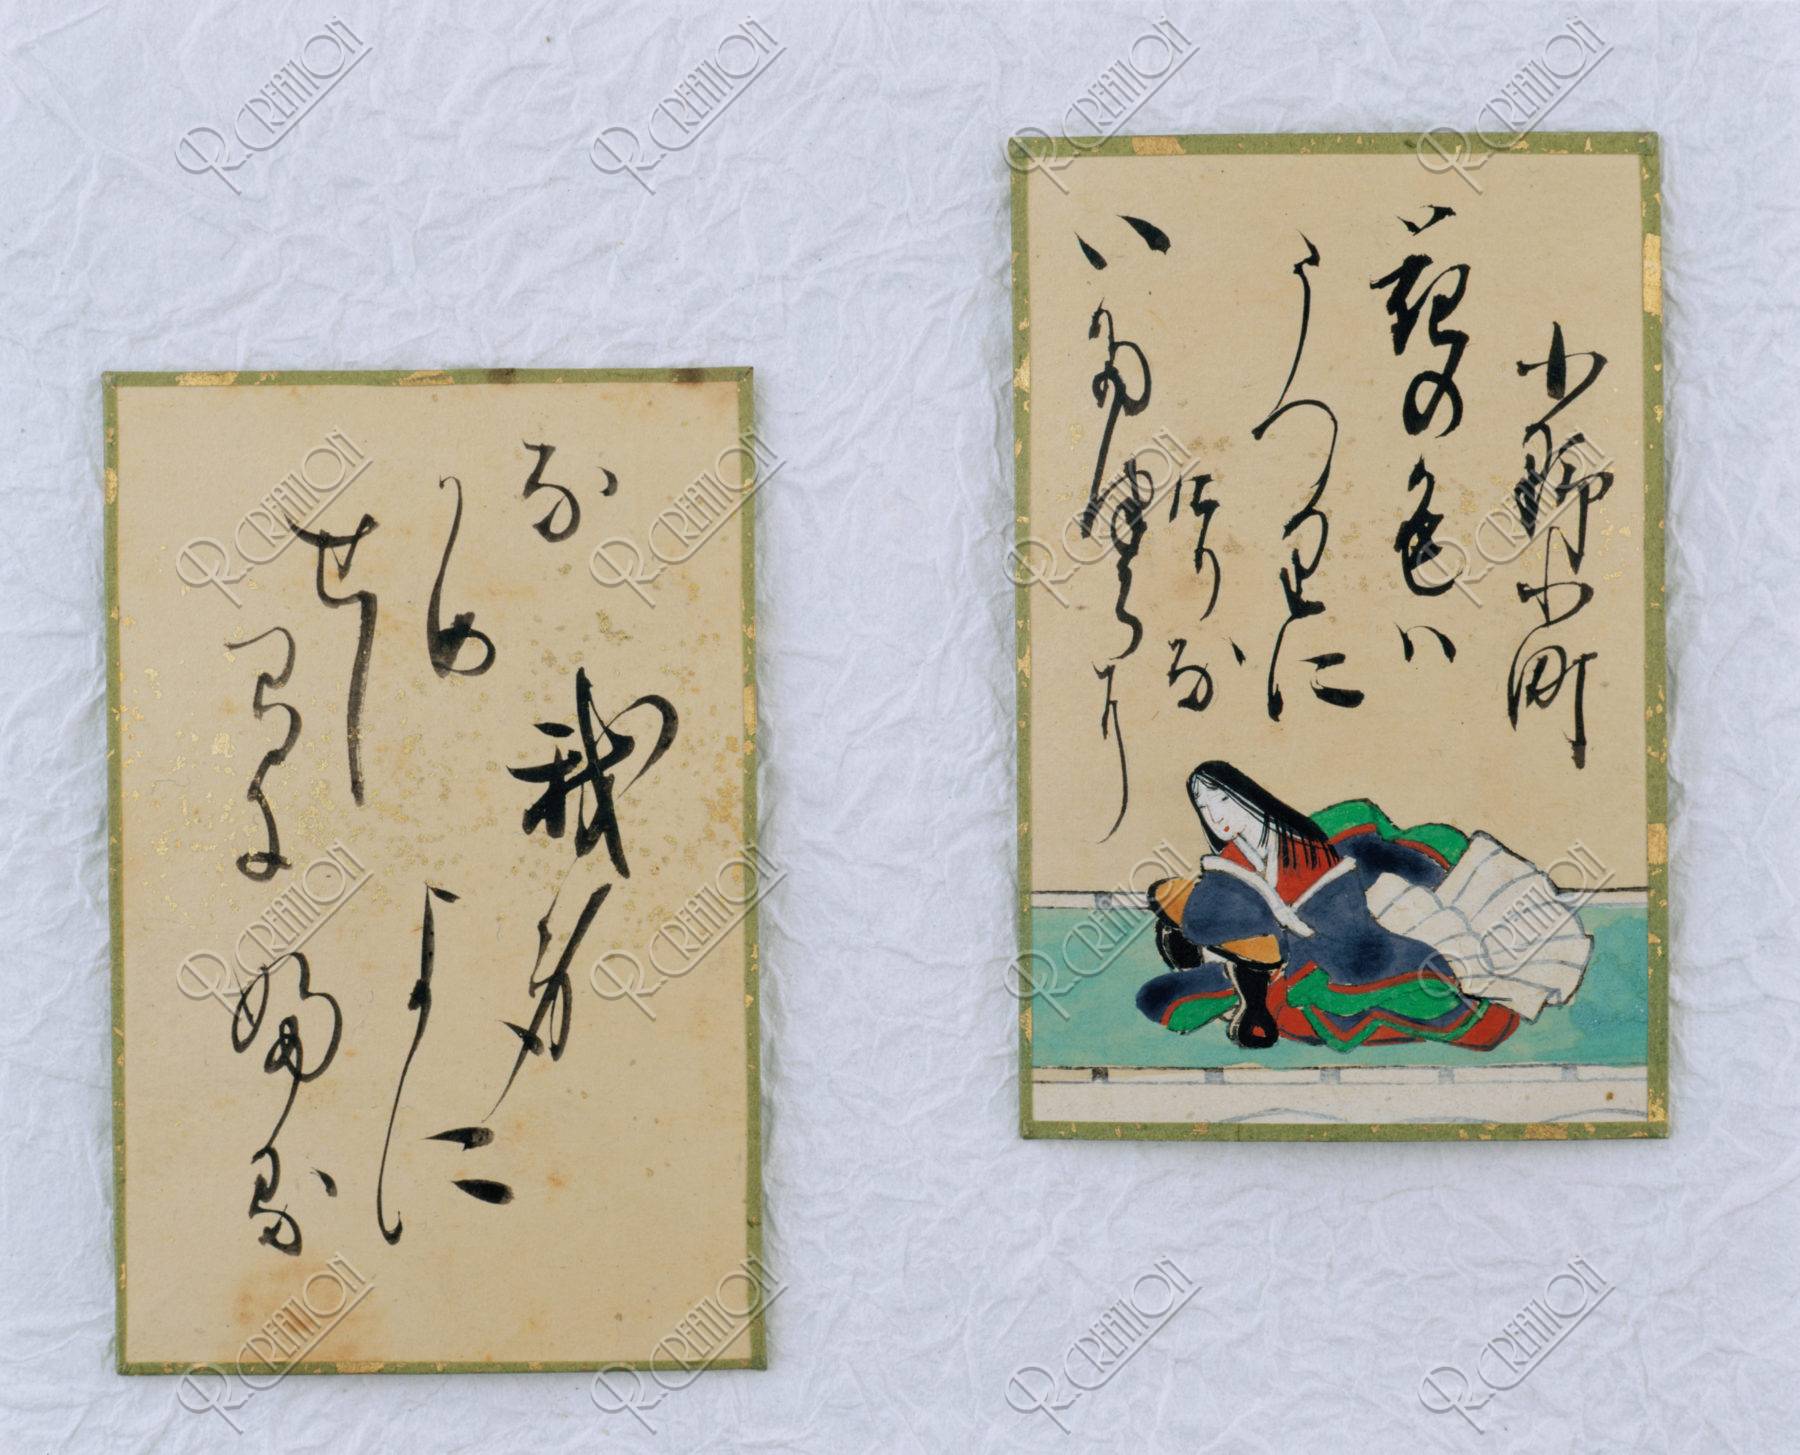 小野小町
花の色ハ
うつりに
けりな
いたつらに
我身
よに
ふる
な
かめ
せし
まに
R.CREATION